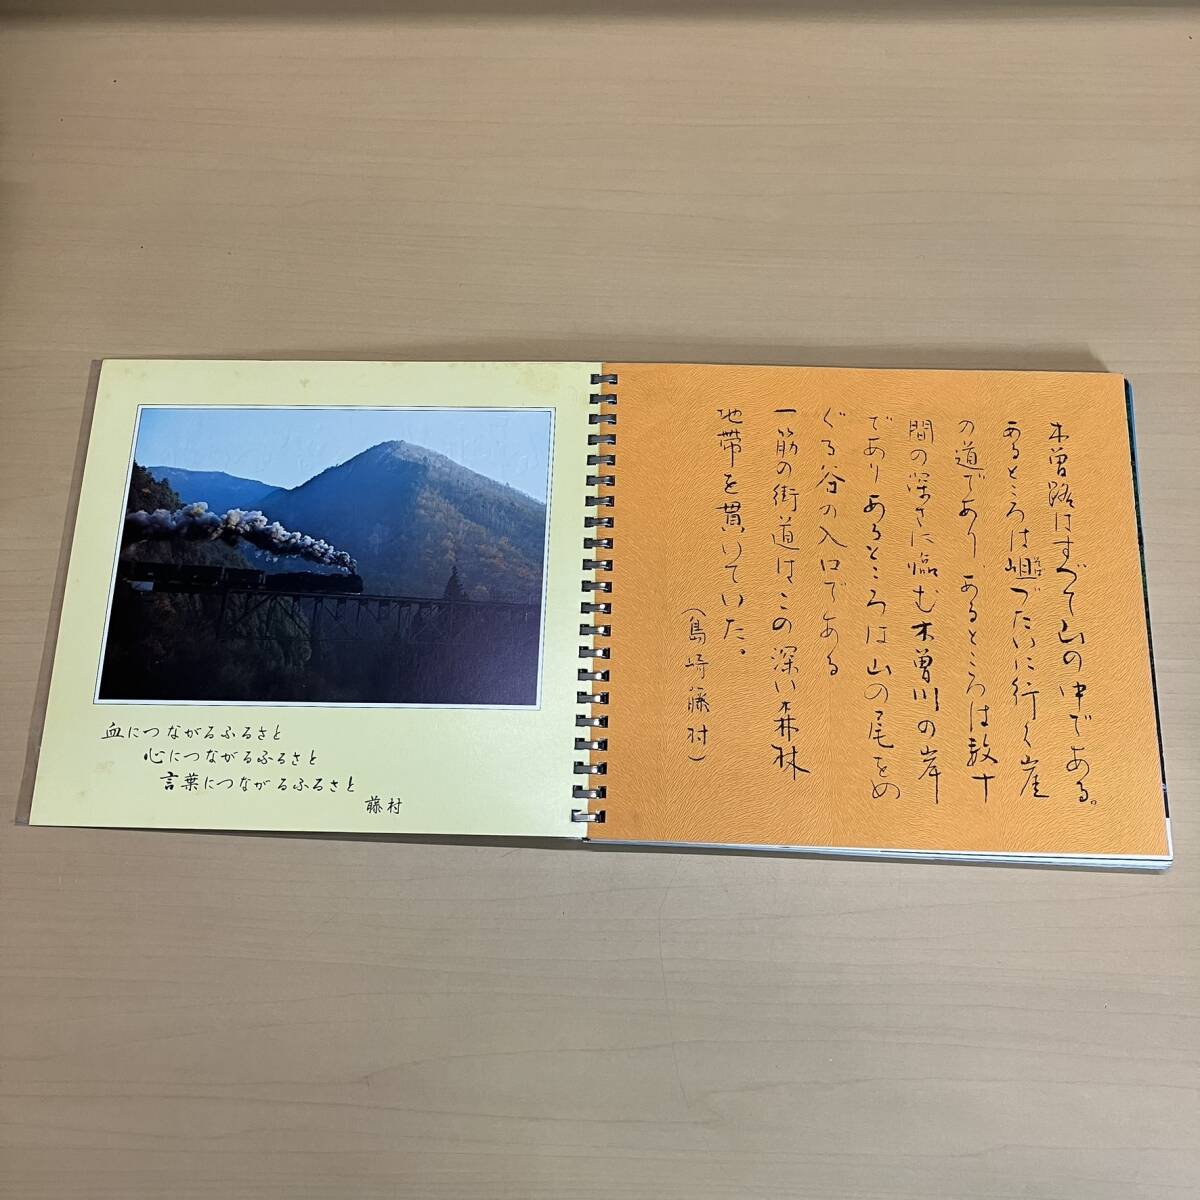 血につながるふるさと
心につながるふるさと
言葉につながるふるさと
藤村
木曽路はすべて山の中である。
あるところは岨づたいに行く崖
の道であり、あるところは数十
間の深さに臨む木曽川の岸
であり あるところは山の尾をめ
ぐる谷の入口である
一筋の街道はこの深い森林
地帯を貫いていた。
(島崎藤村)